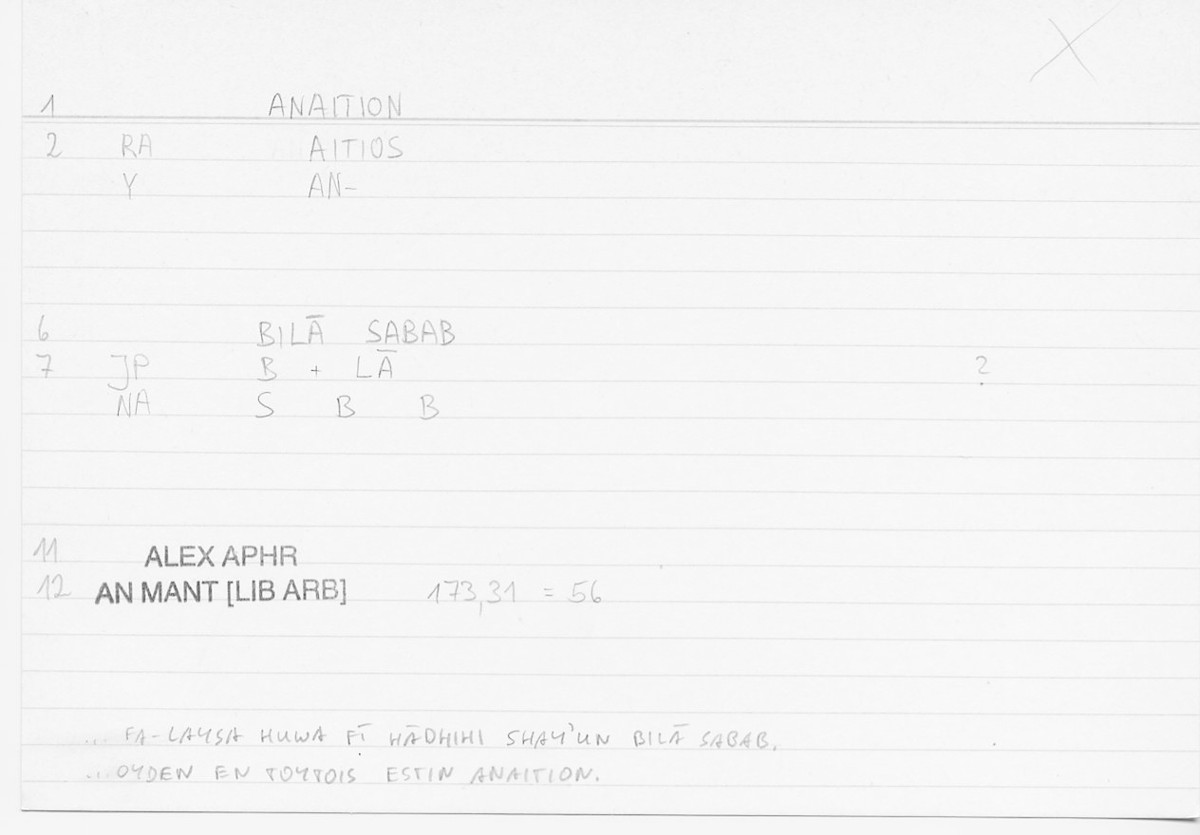 X
1 ANAITION
2 RA AITIOS
Y AN-
6 BILĀ SABAB
7 JP B + LĀ ?
NA S B B
11 ALEX APHR
12 AN MANT [LIB ARB] 173,31 = 56
... FA-LAYSA HUWA FĪ HĀDHIHI SHAY'UN BILĀ SABAB.
... OYDEN EN TOYTOIS ESTIN ANAITION.